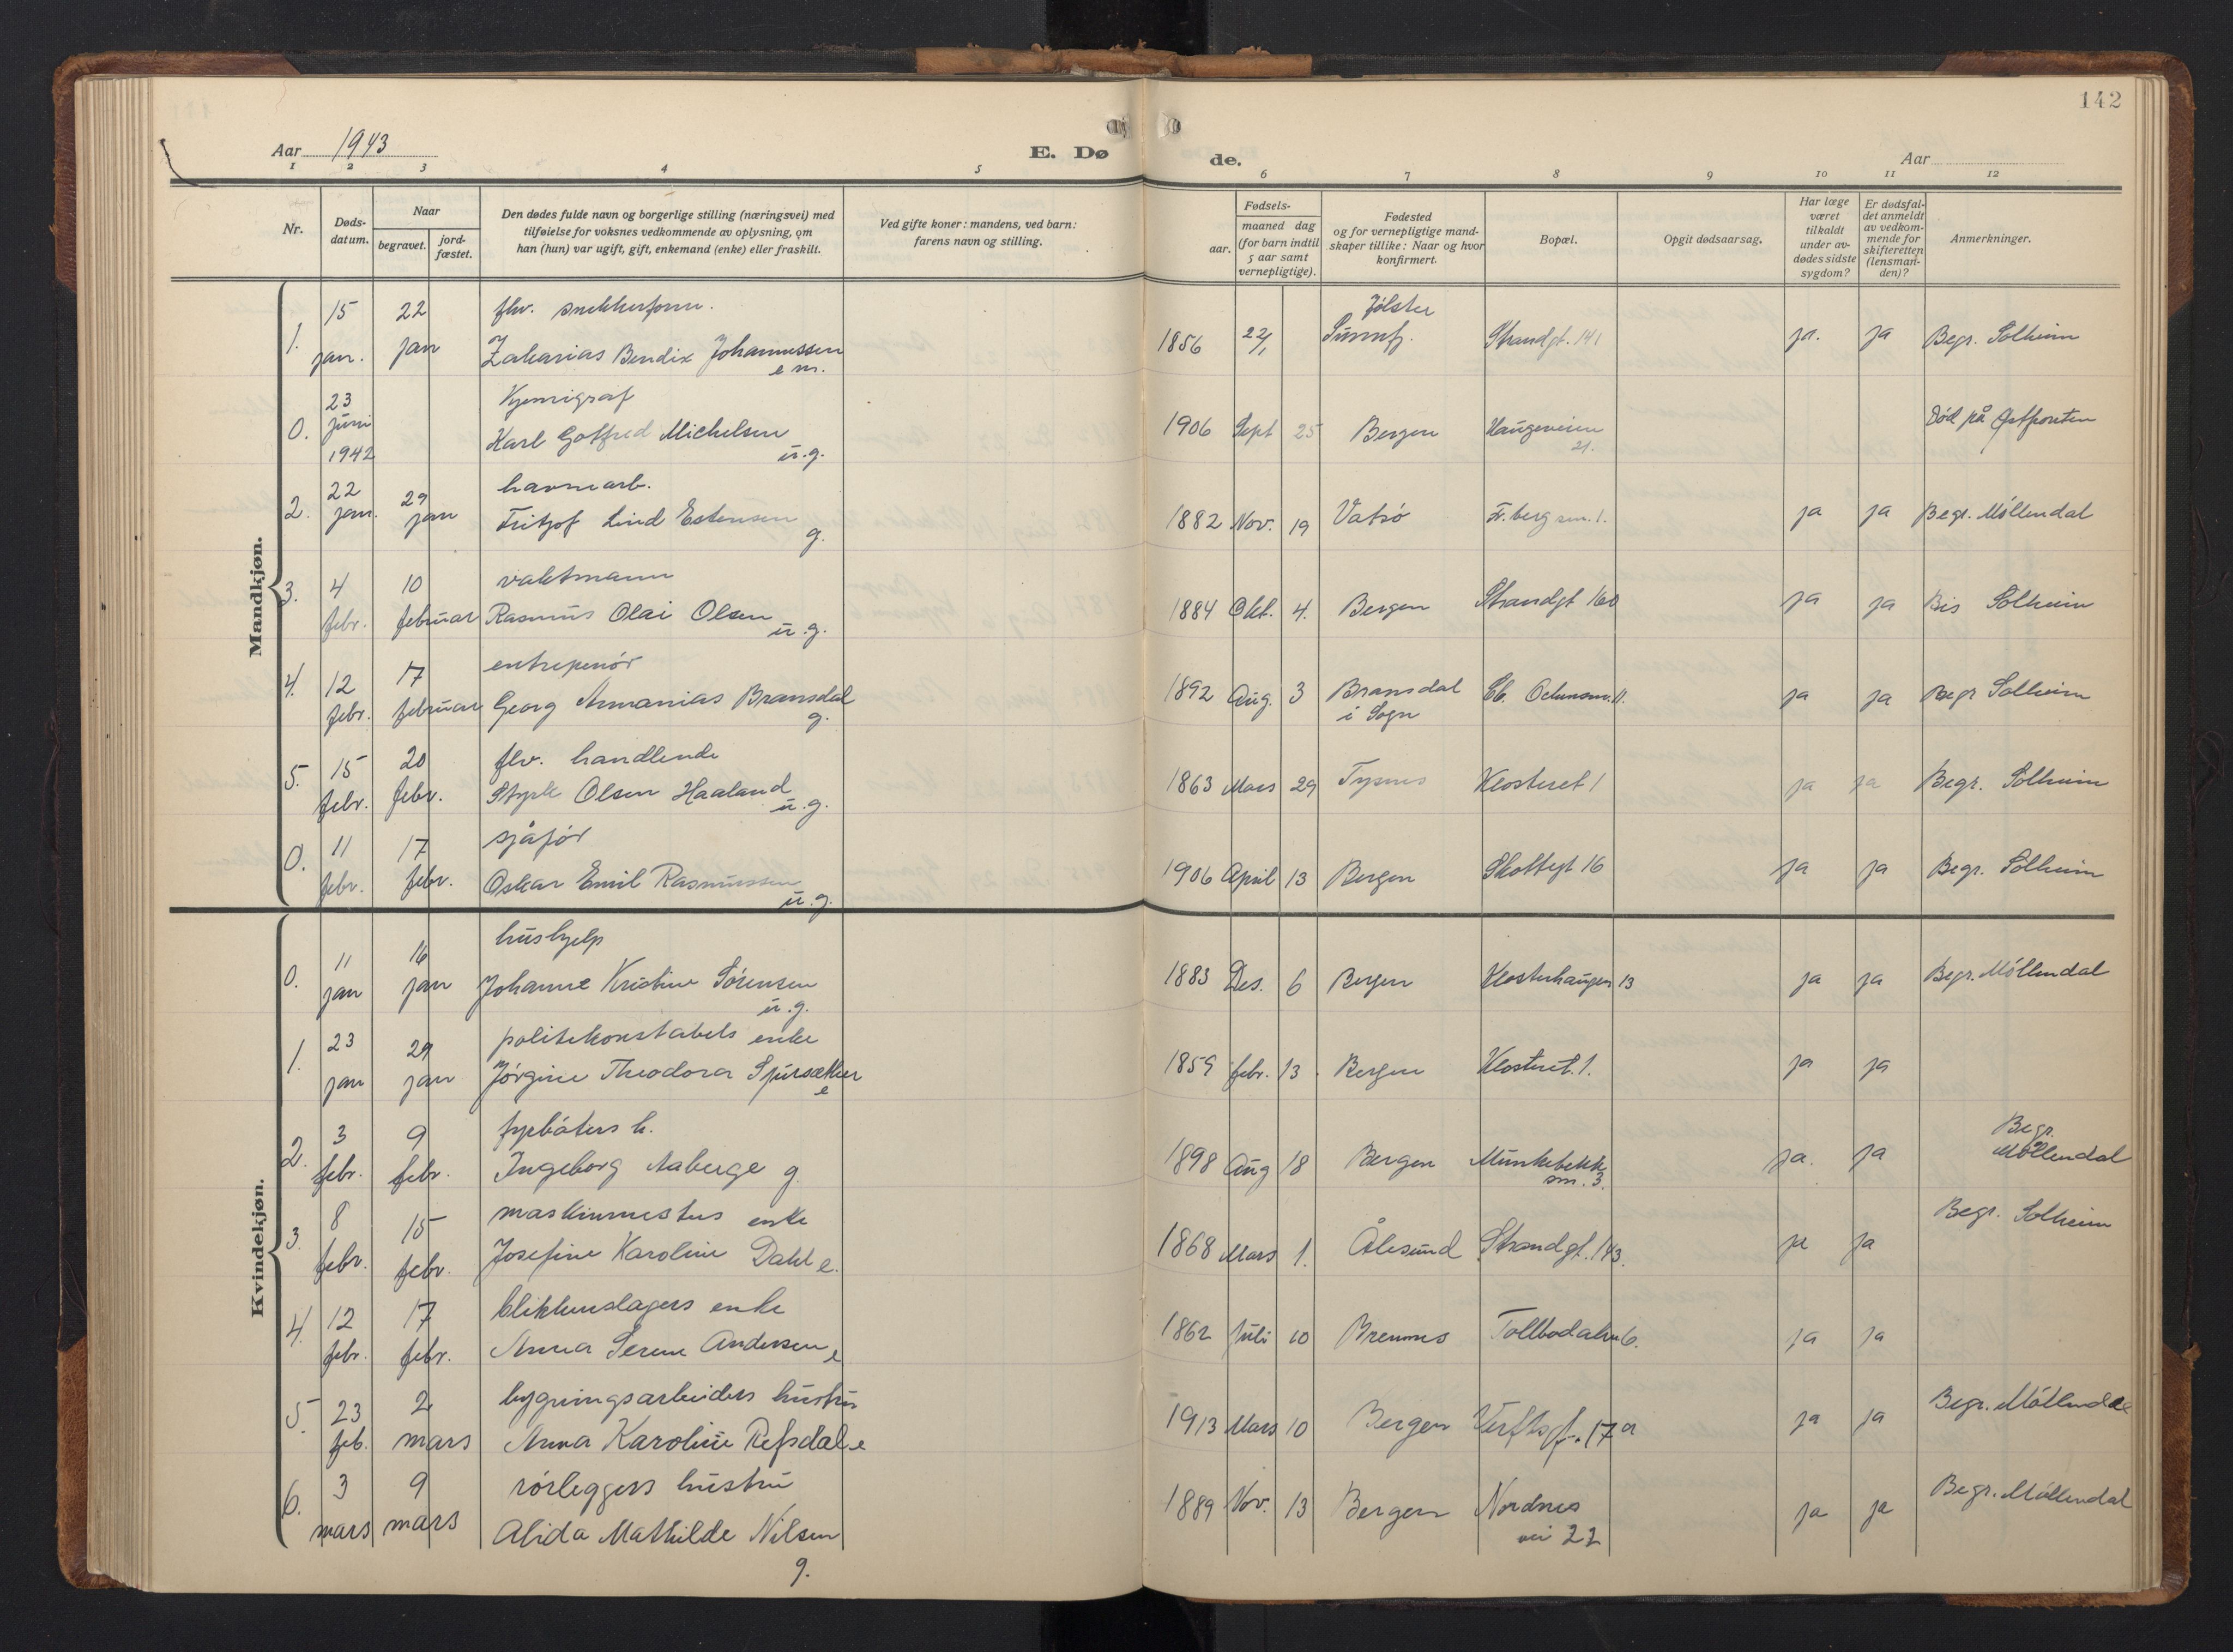 142
Aar 1943
E. Dø
de.
Aar
1 2 3 4 5 6 7 8 9 10 11 12
Nr.
Døds-
datum.
Naar
begravet.
jord-
fæstet.
Den dødes fulde navn og borgerlige stilling (næringsvei) med
tilføielse for voksnes vedkommende av oplysning, om
han (hun) var ugift, gift, enkemand (enke) eller fraskilt.
Ved gifte koner: mandens, ved barn:
farens navn og stilling.
Fødsels-
aar.
maaned dag
(for barn indtil
5 aar samt
vernepligtige).
Fødested
og for vernepligtige mand-
skaper tillike: Naar og hvor
konfirmert.
Bopæl.
Opgit dødsaarsag.
Har læge
været
tilkaldt
under av-
dødes sidste
sygdom?
Er dødsfal-
det anmeldt
av vedkom-
mende for
skifteretten
(lensman-
den)?
Anmerkninger.
Mandkjøn.
15 22 fhv. snekkerform. Jølster
1. jan. jan Zakarias Bendix Johannessen 1856 22/1 Sunnfj. Strandgt. 141 ja. ja Begr. Solheim
e m.
23 Kjemigraf
0. juni Karl Gotfred Michelsen 1906 Sept 25 Bergen Haugeveien Død på Østfronten
1942 u.g. 21.
22 29 havnearb.
2. jan. jan Fritjof Lind Estensen 1882 Nov. 19 Vatsö Fr. berg sm. 1. ja ja Begr. Möllendal
g.
3. 4 10 vaktmann
febr. februar Rasmus Olai Olsen 1884 Okt. 4. Bergen Strandgt 160 ja ja Bis Solheim
u.g.
4. 12 17 entrepenör
febr. februar Georg Annanias Bransdal 1892 Aug. 3 Bransdal ja ja Begr Solheim
g. i Sogn
5. 15 20 fhv. handlende
febr. febr. Styrk Olsen Haaland 1863 Mars 29 Tysnes Klosteret 1 ja ja Begr. Solheim
u.g.
0. 11 17 sjåför
febr. febr. Oskar Emil Rasmussen 1906 April 13 Bergen Skottegt 16 ja ja Begr. Solheim
u.g.
Kvindekjøn.
0. 11 16 hushjelp
jan jan Johanne Kristine Sörensen 1883 Des. 6 Bergen Klosterhaugen 13 ja ja Begr. Möllendal
u.g.
1. 23 29 politikonstabels enke
jan jan Jörgine Theodora 1859 febr. 13. Bergen Klosteret. 1. ja ja
e
2. 3 9 fyrböters h. Begr.
febr. febr. Ingeborg Aaberge g. 1898 Aug 18 Bergen Munkebekk ja. ja Möllendal
sm. 3.
3. 8 15 maskinmesters enke
febr. febr. Josefine Karoline Dahl e. 1868 Mars 1. Ålesund Strandgt. 143. ja ja Begr. Solheim
4. 12 17 blikkenslagers enke
febr. febr. Anna Serine Andersen e 1862 Juli 10 Bremnes Tollbodalm 6. ja ja
5. 23 2 bygningsarbeiders hustru
feb. mars Anna Karoline Refsdal e 1913 Mars 10 Bergen Verftsgt. 17 a ja ja Begr. Möllendal
6. 3 9 rörleggers hustru
mars mars Alida Mathilde Nilsen 1889 Nov. 13 Bergen Nordnes ja ja Begr. Möllendal
g. vei 22